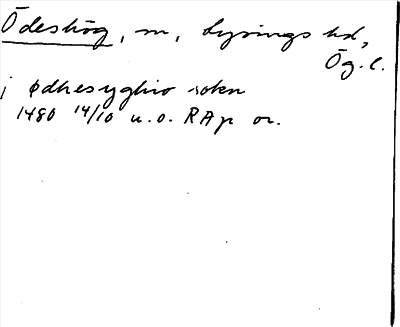 Ödeshög, sn, Lysings hd,
Ög. l.
j ødhesyghio sokn
1480 14/10 u. o. RAp or.